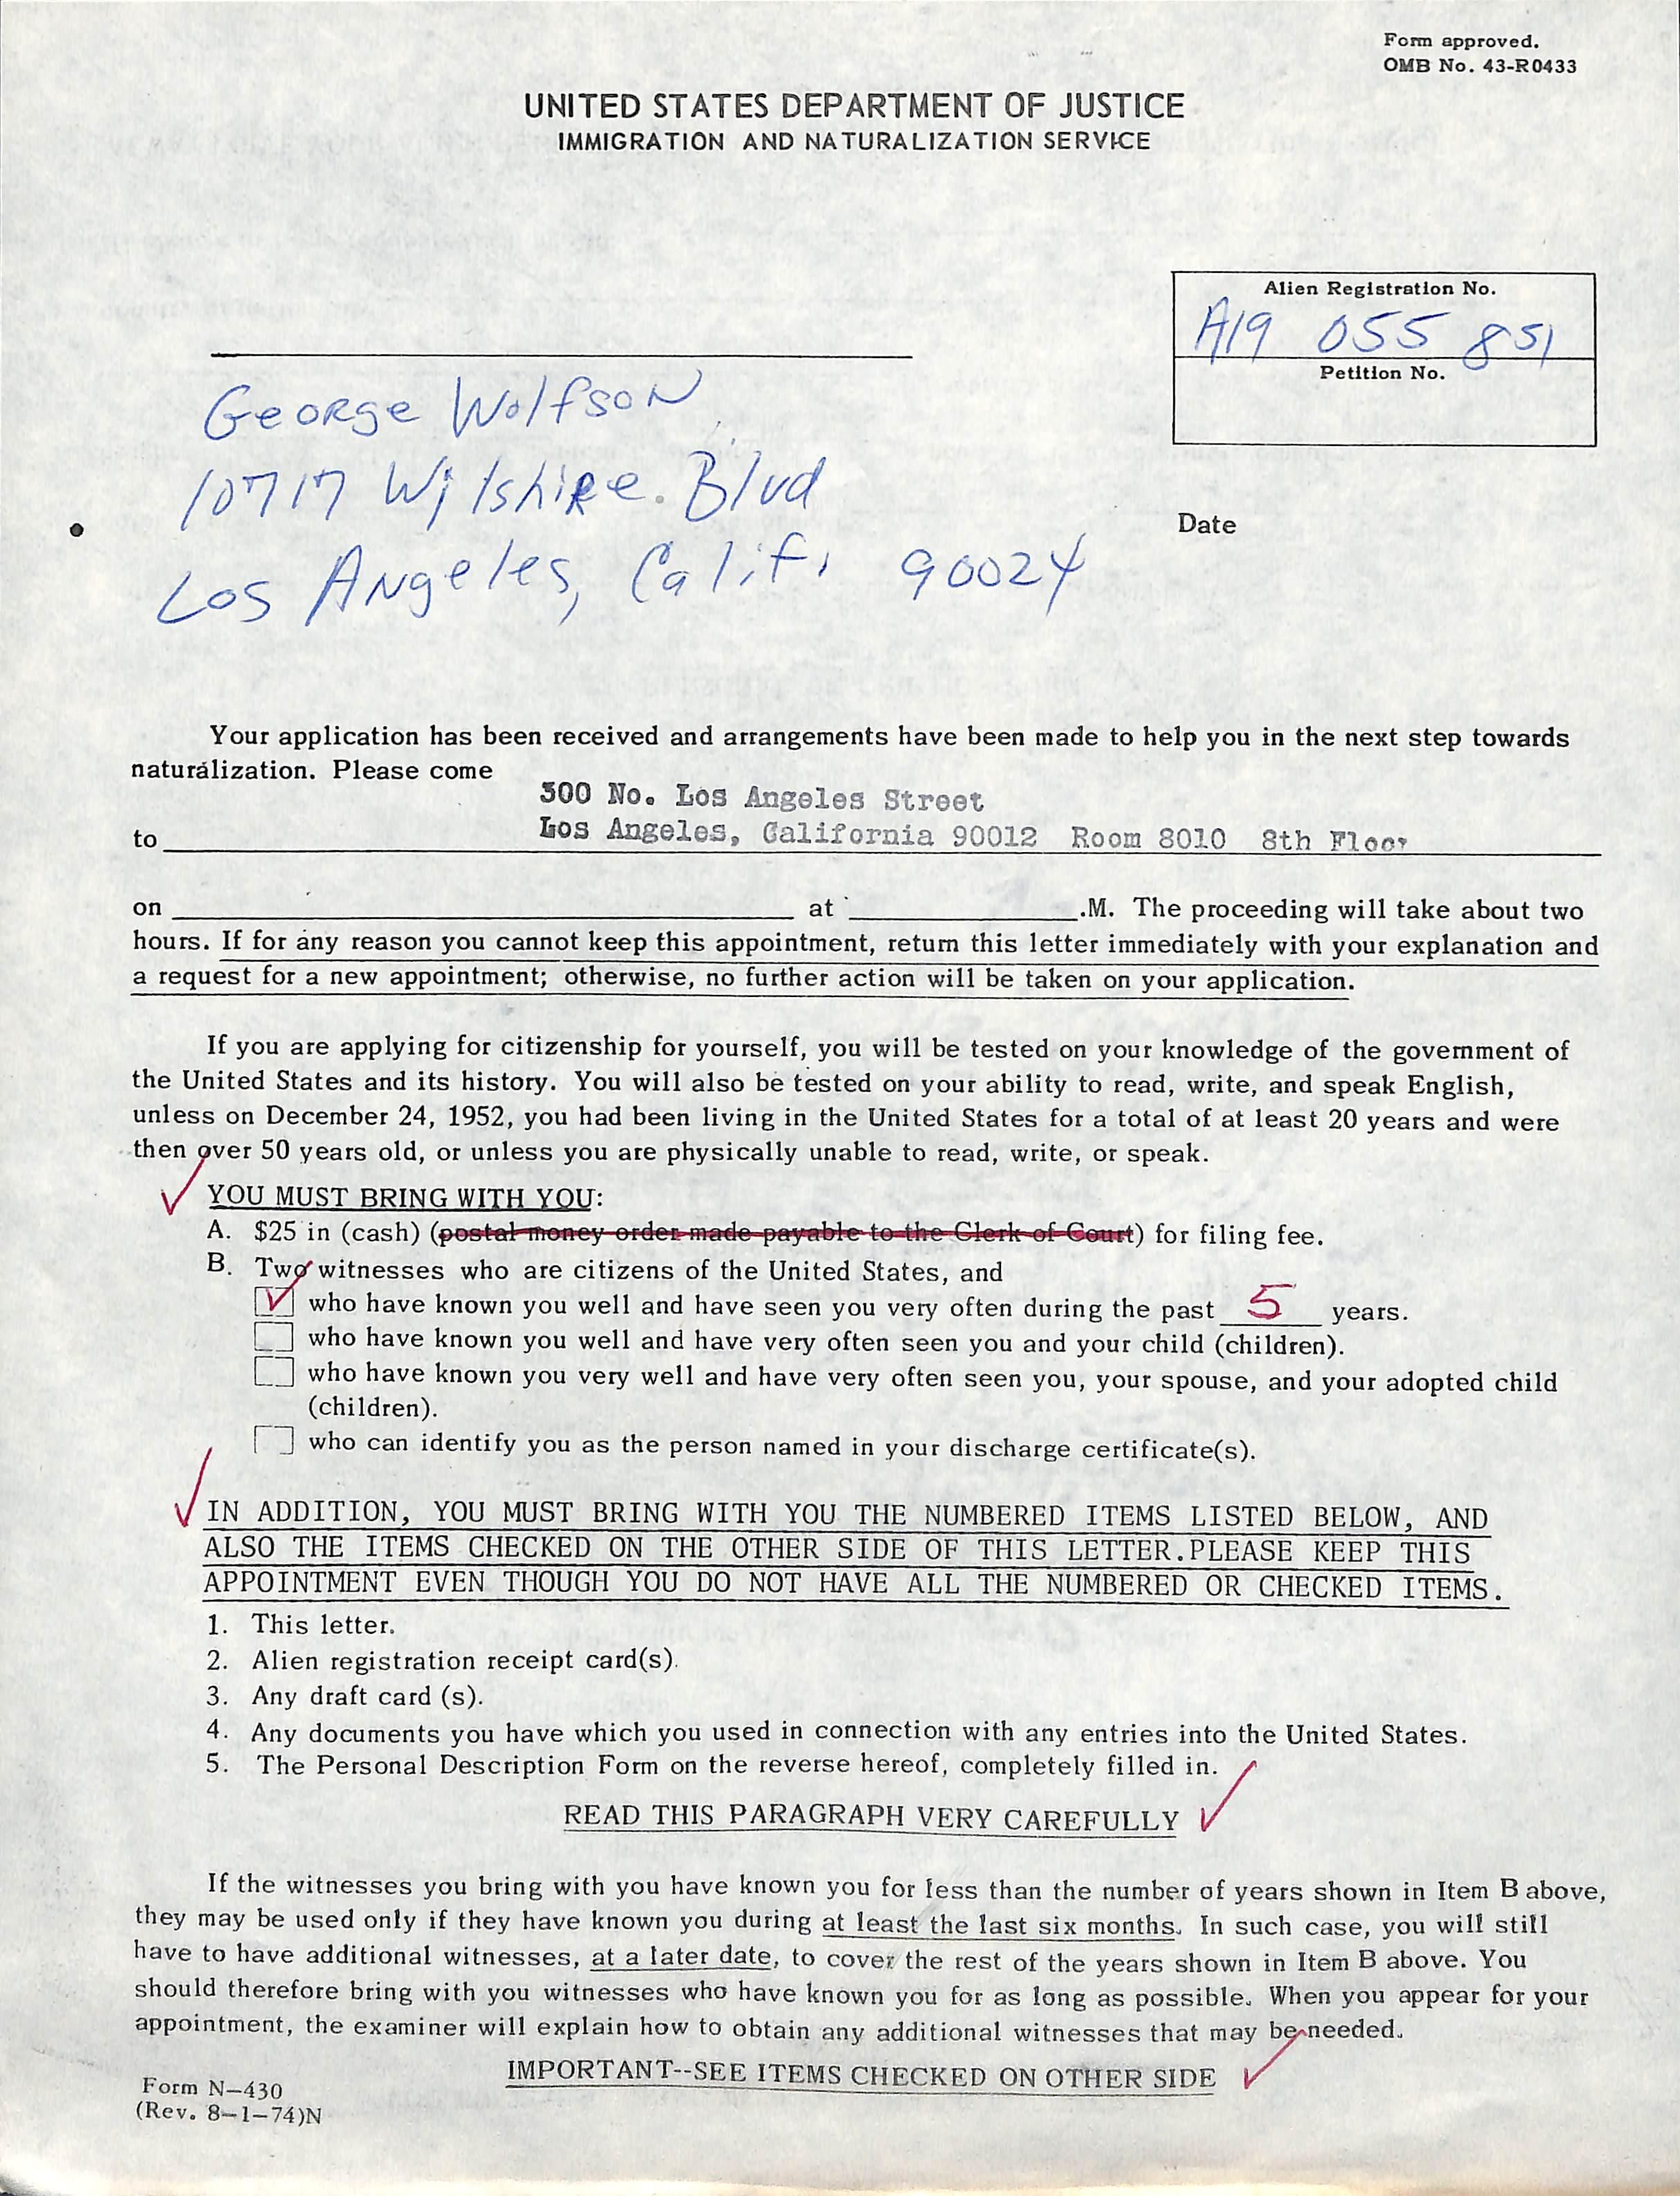 Form approved.
OMB No. 43-R0433
UNITED STATES DEPARTMENT OF JUSTICE
IMMIGRATION AND NATURALIZATION SERVICE
Alien Registration No.
A19 055 851
Petition No.
George Wolfson
10717 Wilshire. Blvd
Los Angeles, Calif. 90024
Date
Your application has been received and arrangements have been made to help you in the next step towards
naturalization. Please come
300 No. Los Angeles Street
to Los Angeles, California 90012 Room 8010 8th Floor
on at .M. The proceeding will take about two
hours. If for any reason you cannot keep this appointment, return this letter immediately with your explanation and
a request for a new appointment; otherwise, no further action will be taken on your application.
If you are applying for citizenship for yourself, you will be tested on your knowledge of the government of
the United States and its history. You will also be tested on your ability to read, write, and speak English,
unless on December 24, 1952, you had been living in the United States for a total of at least 20 years and were
then over 50 years old, or unless you are physically unable to read, write, or speak.
YOU MUST BRING WITH YOU:
A. $25 in (cash) (postal money order made payable to the Clerk of Court) for filing fee.
B. Two witnesses who are citizens of the United States, and
who have known you well and have seen you very often during the past 5 years.
who have known you well and have very often seen you and your child (children).
who have known you very well and have very often seen you, your spouse, and your adopted child
(children).
who can identify you as the person named in your discharge certificate(s).
IN ADDITION, YOU MUST BRING WITH YOU THE NUMBERED ITEMS LISTED BELOW, AND
ALSO THE ITEMS CHECKED ON THE OTHER SIDE OF THIS LETTER.PLEASE KEEP THIS
APPOINTMENT EVEN THOUGH YOU DO NOT HAVE ALL THE NUMBERED OR CHECKED ITEMS.
1. This letter.
2. Alien registration receipt card(s).
3. Any draft card (s).
4. Any documents you have which you used in connection with any entries into the United States.
5. The Personal Description Form on the reverse hereof, completely filled in.
READ THIS PARAGRAPH VERY CAREFULLY
If the witnesses you bring with you have known you for less than the number of years shown in Item B above,
they may be used only if they have known you during at least the last six months. In such case, you will still
have to have additional witnesses, at a later date, to cover the rest of the years shown in Item B above. You
should therefore bring with you witnesses who have known you for as long as possible. When you appear for your
appointment, the examiner will explain how to obtain any additional witnesses that may be needed.
IMPORTANT--SEE ITEMS CHECKED ON OTHER SIDE
Form N-430
(Rev. 8-1-74)N